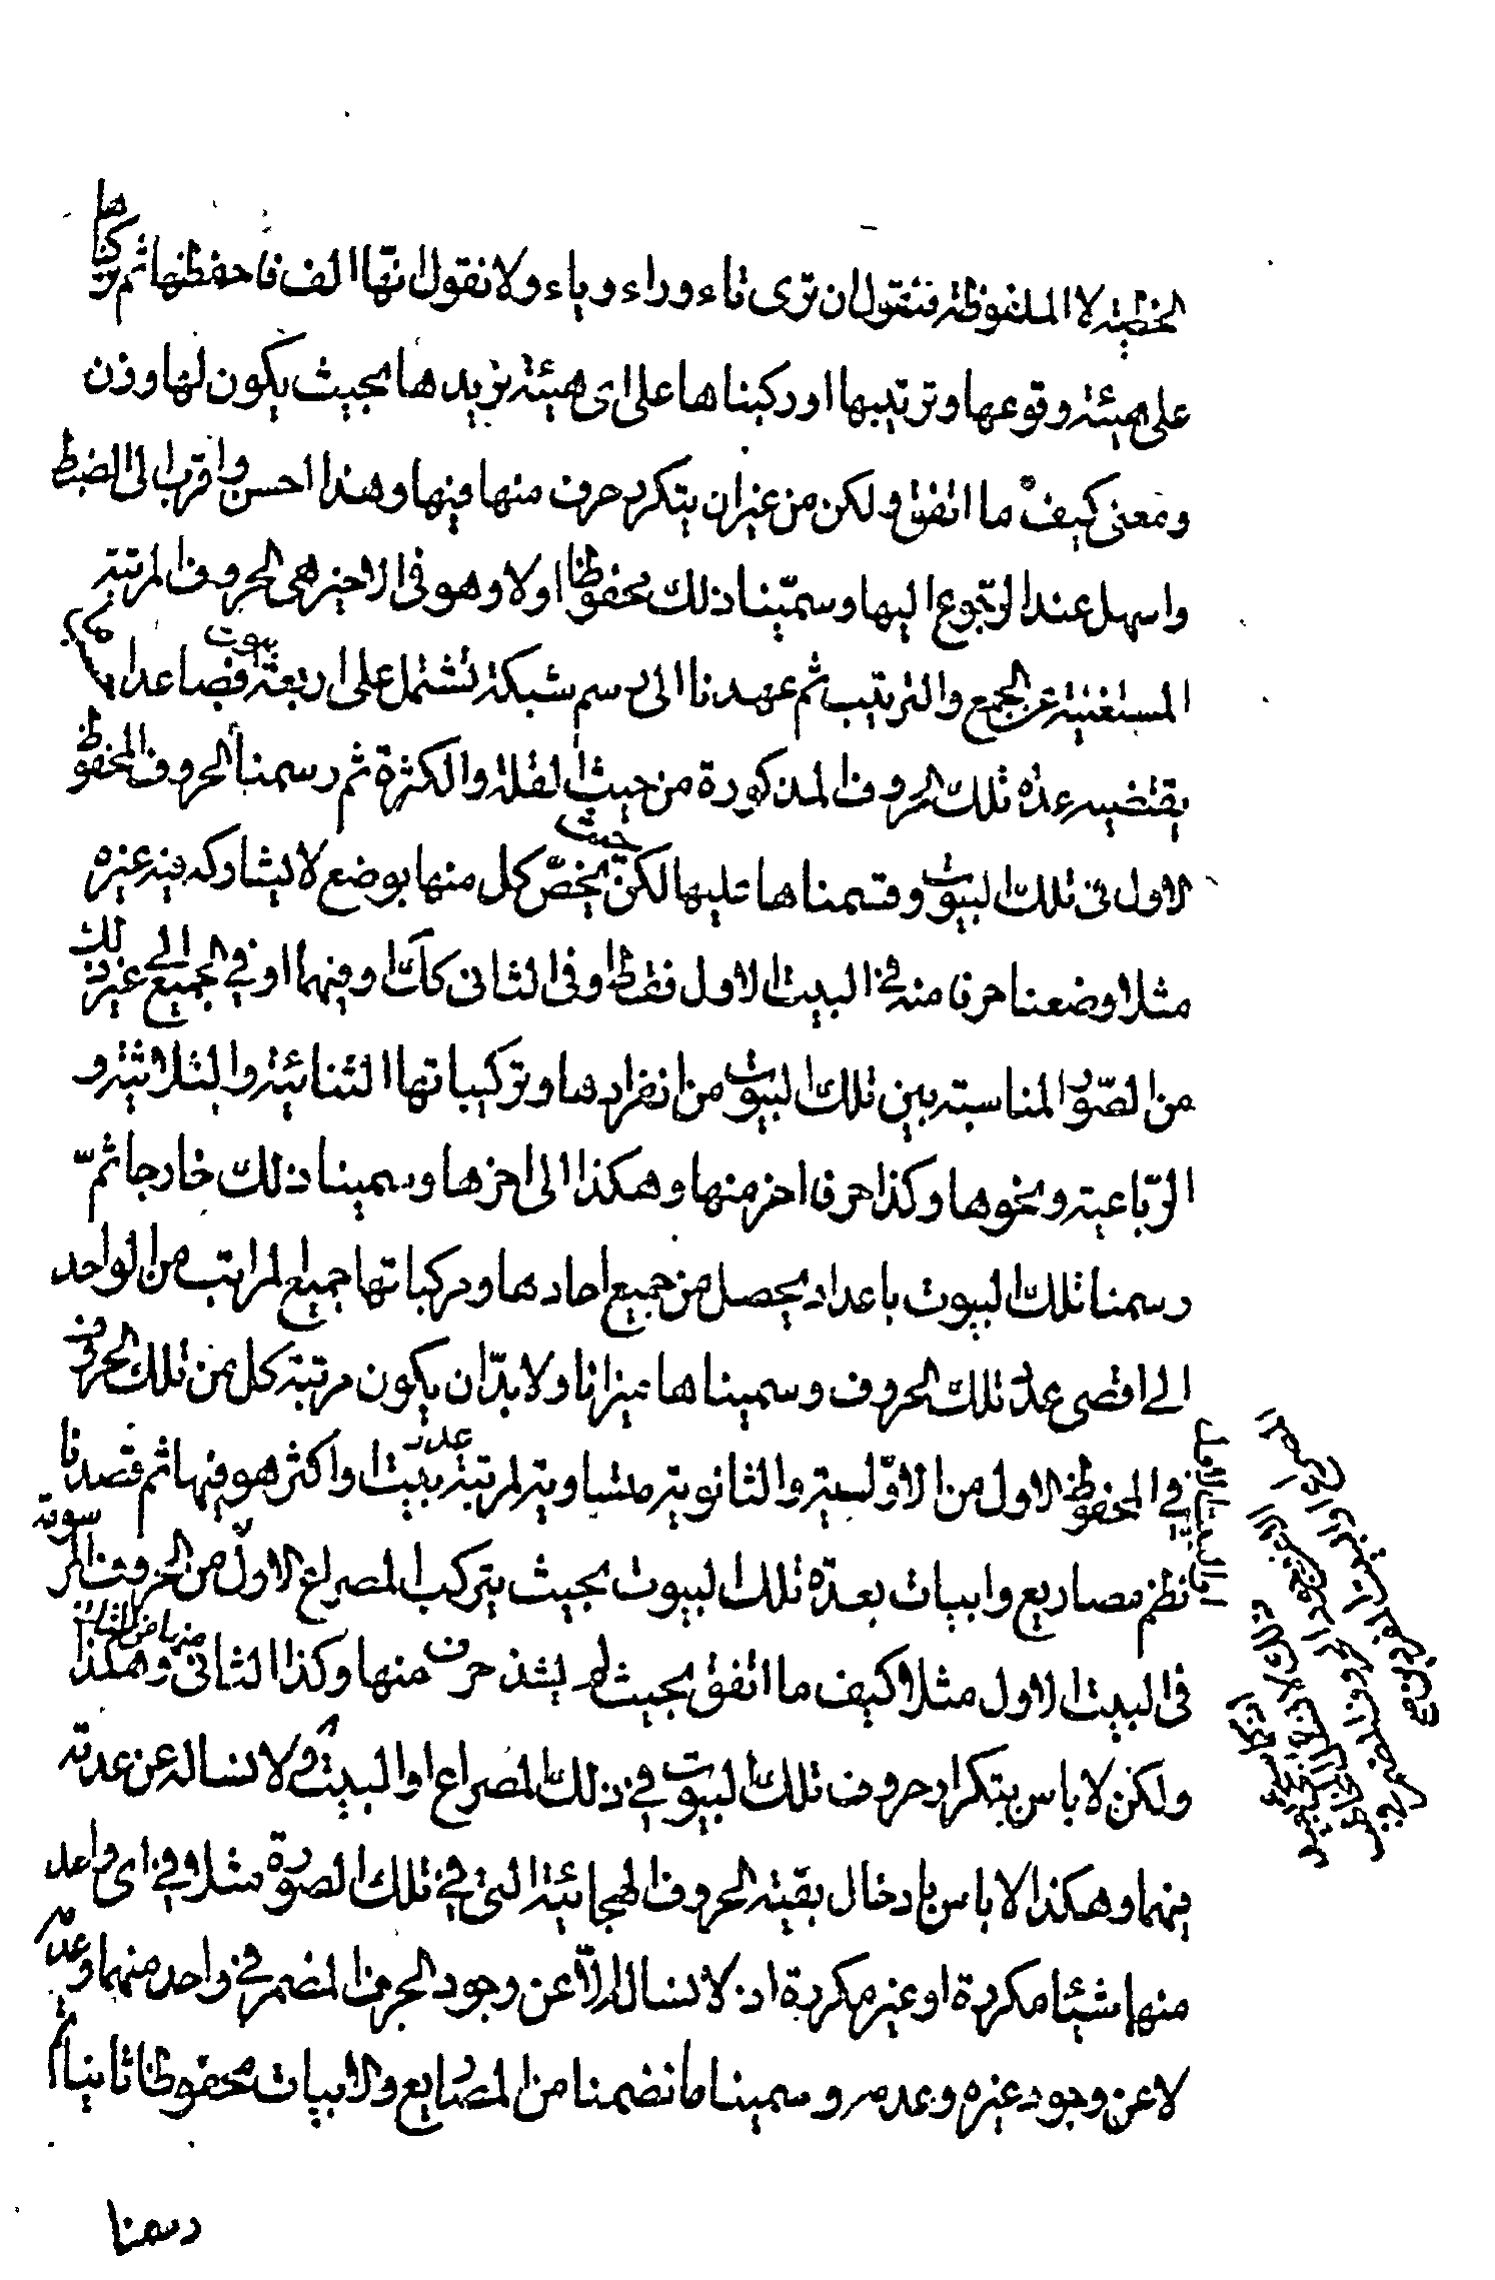 الخطية لا الملفوظة فنقول ان ترى تاء وراء وياء ولا نقول انها الف فاحفظها ثم ركبناها
على هيئة وقوعها وترتيبها او ركبناها على اى هيئة نريدها بحيث يكون لها وزن
ومعنى كيف ما اتفق ولكن من غير ان يتكرر حرف منها فيها وهذا احسن واقرب الى الضبط
واسهل عند الرجوع اليها وسمينا ذلك محفوظا اولا وهو فى الاخير هى الحروف المرتبة
المستغنية عن الجمع والترتيب ثم عهدنا الى رسم شبكة تشتمل على اربعة بيوت فصاعدا
يقتضيه عدة تلك الحروف المذكورة من حيث القلة والكثرة ثم رسمنا الحروف المحفوظ
الاول فى تلك البيوت وقسمناها عليها لكن بحيث يخص كل منها بوضع لا يشاركه فيه غيره
مثلا وضعنا حرفا منه فى البيت الاول فقط او فى الثانى كك او فيهما او فى الجميع الى غير ذلك
من الصور المناسبة بين تلك البيوت من انفرادها وتركيباتها الثنائية والثلاثية و
الرباعية ونحوها وكذا حرفا اخر منها وهكذا الى اخرها وسمينا ذلك خارجا ثم
رسمنا تلك البيوت باعداد يحصل من جميع احادها ومركباتها جميع المراتب من الواحد
الى اقصى عدد تلك الحروف وسميناها ميزانا ولا بد ان يكون مرتبة كل من تلك الحروف
فى المحفوظ الاول من الاولية والثانوية متساوية لمرتبة عدد بيت او اكثر هو فيها ثم قصدنا
نظم مصاريع وابيات بعدة تلك البيوت بحيث يتركب المصراع الاول من الحروف المرسومة
فى البيت الاول مثلا كيف ما اتفق بحيث لم يشذ حرف منها وكذا الثانى وهكذا
ولكن لا باس بتكرار حروف تلك البيوت فى ذلك المصراع او البيت ولا نساله عن عدته
فيهما وهكذا لا باس بادخال بقية الحروف الهجائية التى فى تلك الصورة مثلا وفى اى واحد
منها شيئا مكررة او غير مكررة اذ لا نساله الا عن وجود الحرف المضمر فى واحد منهما وعدمه
لا عن وجود غيره وعدمه وسمينا ما تضمنا من المصاريع والابيات محفوظا ثانيا ثم
رسمنا
او البيت الاول